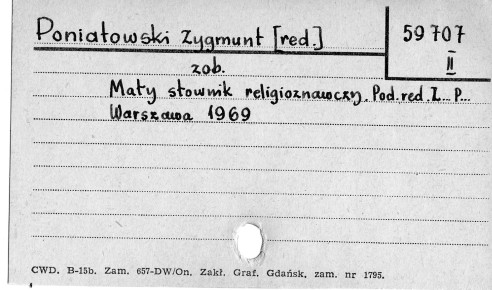 Poniatowski Zygmunt [red.]
59707
II
zob.
Mały słownik religioznawczy. Pod. red. Z.. P...
Warszawa 1969
CWD. B-15b. Zam. 657-DW/On. Zakł. Graf. Gdańsk, zam. nr 1795.